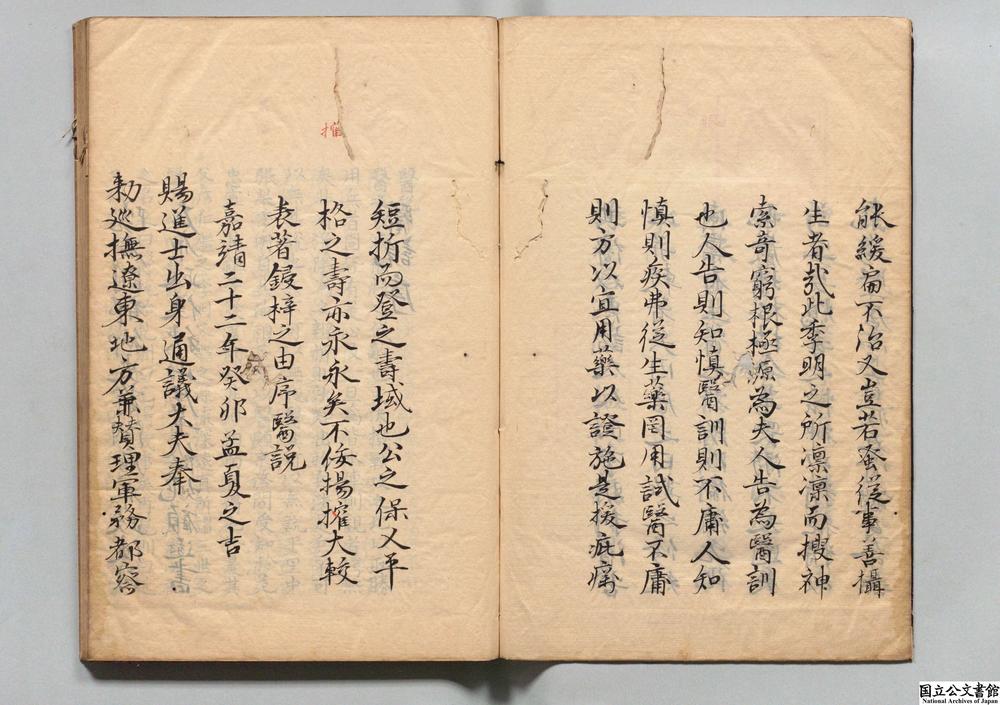 能緩扁不治又豈若蚤從事善攝
生者哉此李明之所凛凛而搜神
索奇窮根極源為夫人告為醫訓
也人告則知慎醫訓則不庸人知
慎則疾弗從生藥罔用試醫不庸
則方以宜用藥以證施是援疵癘
短折而登之壽域也公之保乂平
格之壽亦永永矣不佞揚搉大較
表著鋟梓之由序醫説
嘉靖二十二年癸卯孟夏之吉
賜進士出身通議大夫奉
勅巡撫遼東地方兼贊理軍務都察
国立公文書館
National Archives of Japan